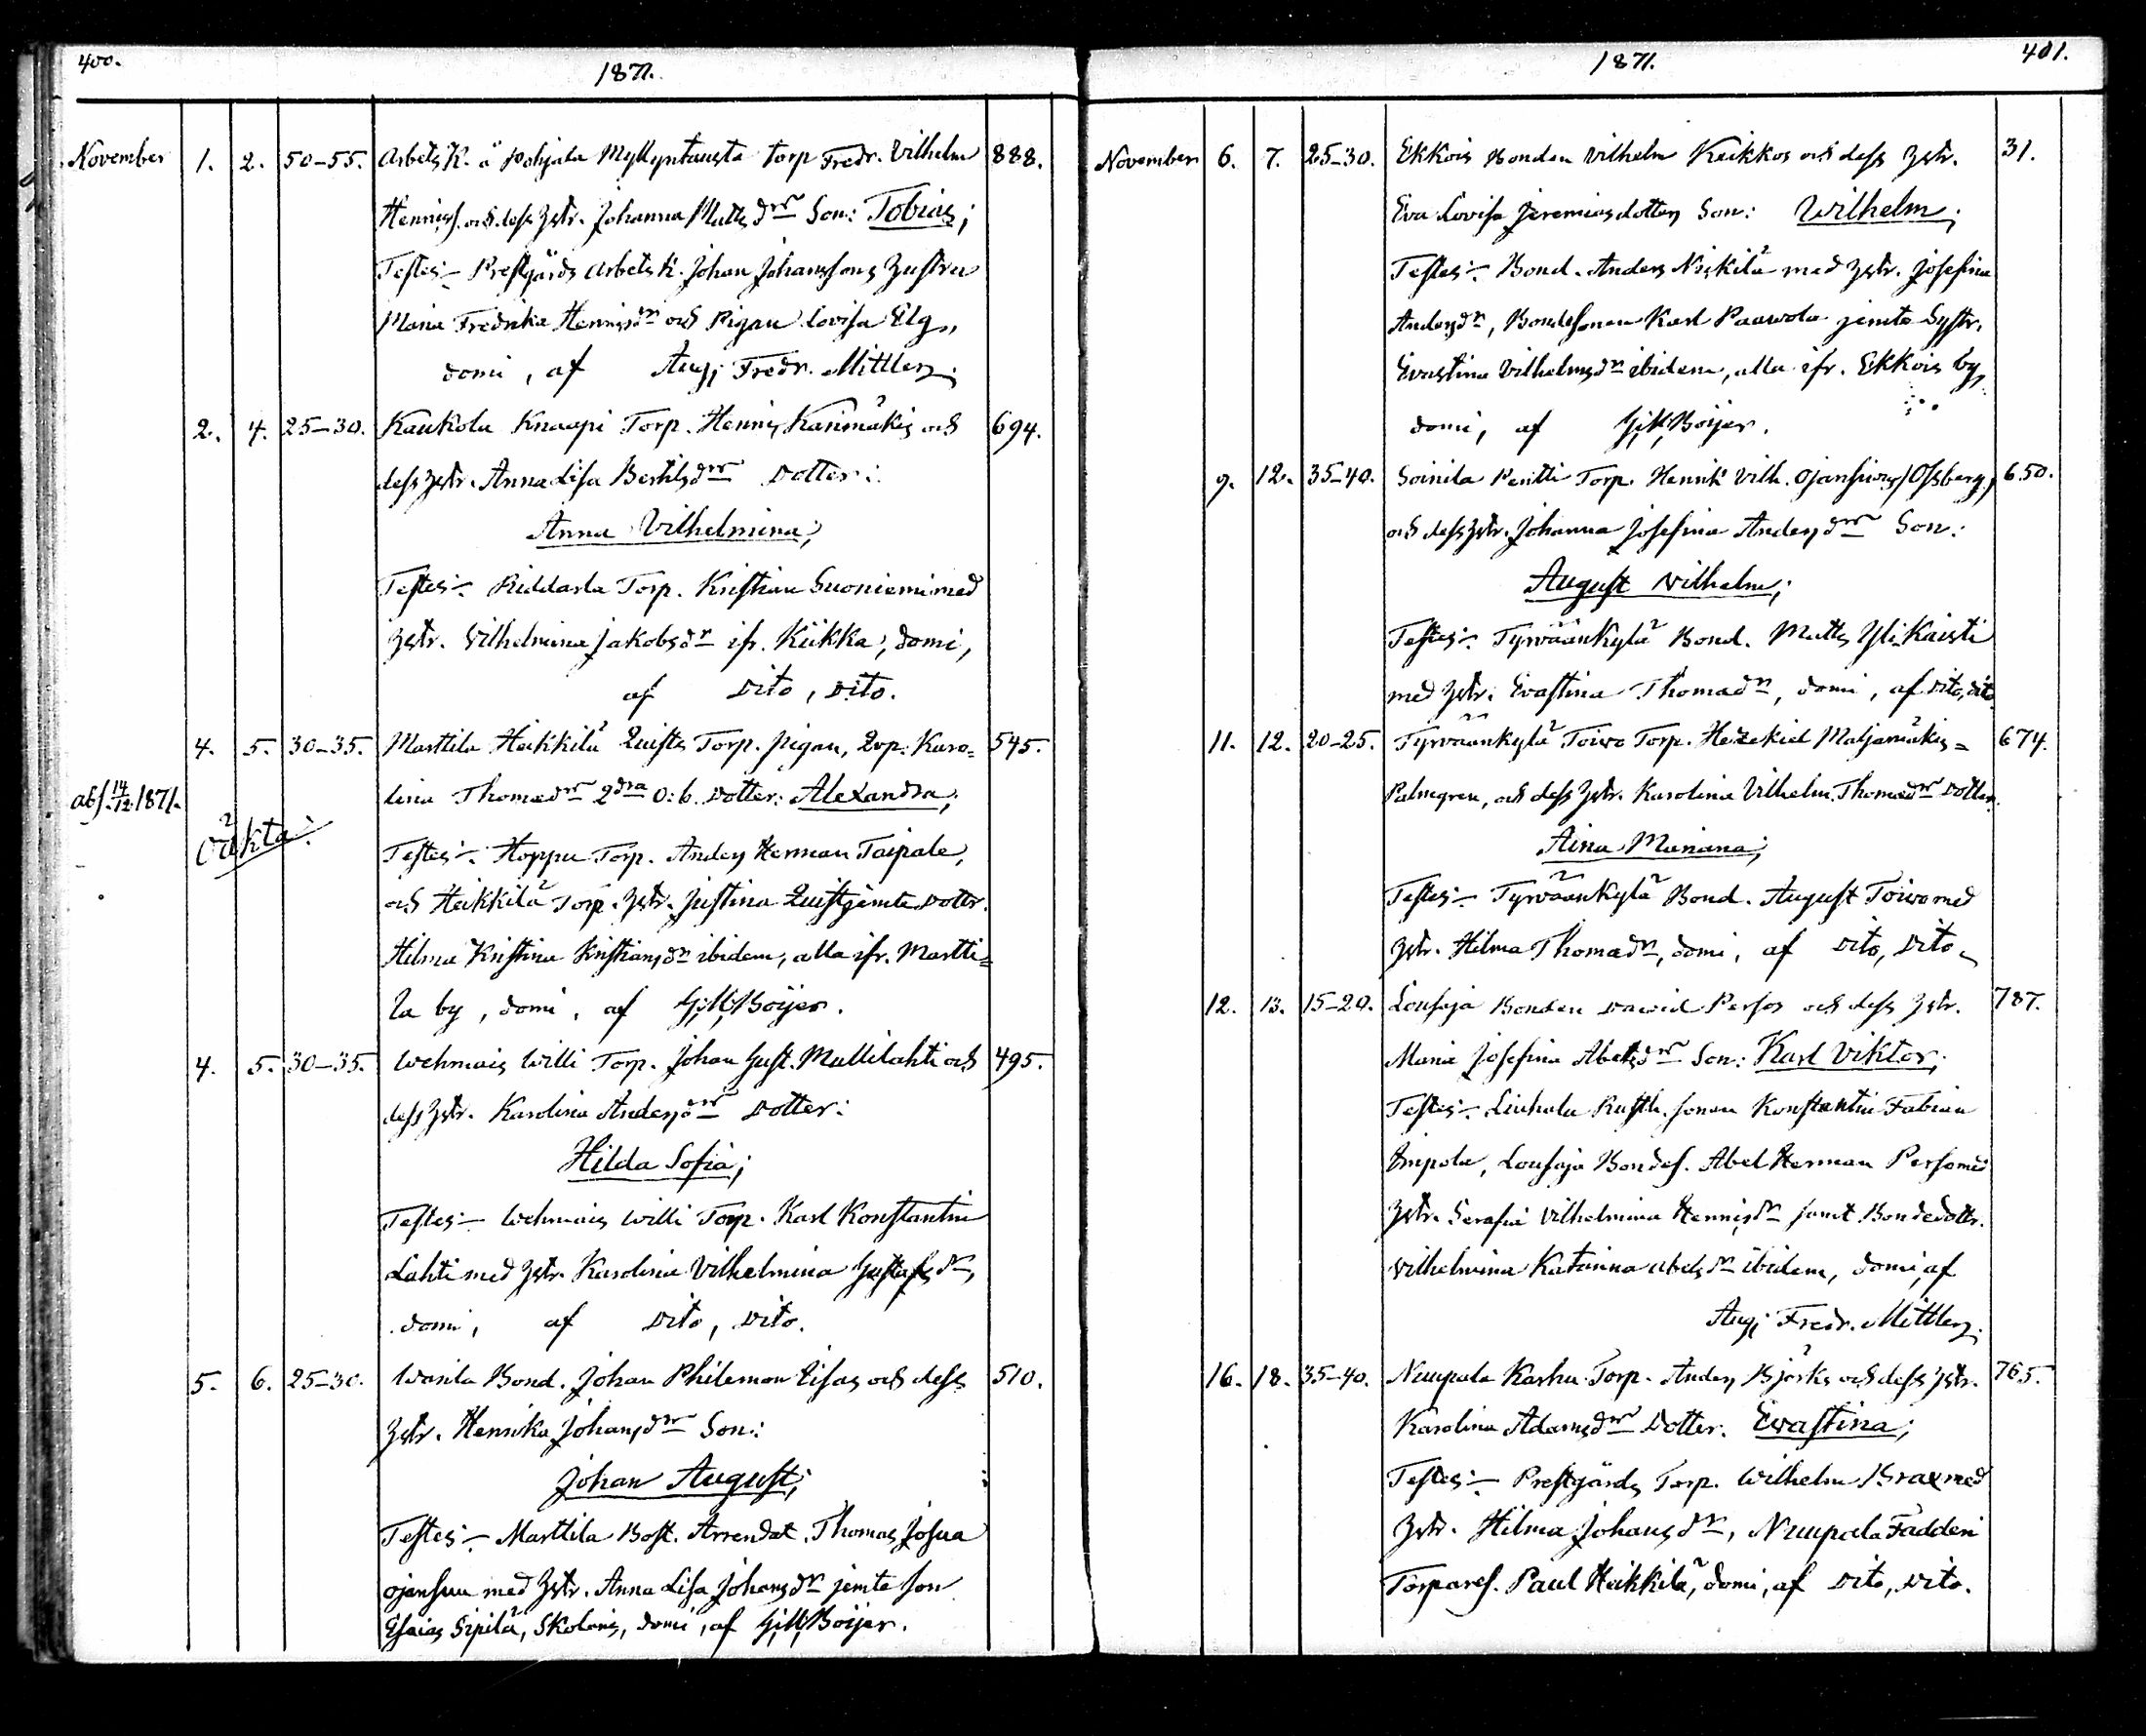 400.
1871.
November 1. 2. 50–55. Arbets K. å Pohjala Myllyntausta torp Fredr. Vilhelm 888.
Henrikss. och dess Hstr. Johanna Matts dr Son: Tobias;
Testes:– Prestgårds Arbets k. Johan Johanssons Hustru
Maria Fredrika Henriksdr och Pigan Lovisa Elg,,
domi, af Aug; Fredr. Mittler;
2. 4. 25–30. Kaukola Knaapi Torp. Henrik Karimäki och 694.
dess Hstr. Anna Lisa Bertils dr Dotter:
Anna Vilhelmina;
Testes:– Riddarla Torp. Kristian Suoniemi med
Hstr. Vilhelmina Jakobs dr ifr. Kiikka, domi,
af Dito, Dito.
4. 5. 30–35. Marttila Heikkilä Quists Torp. pigan, Karo= 545.
lina Thomædr 2dra o: b. Dotter: Alexandra;
abs. 14/12 1871.
oäkta:
Testes:– Hoppu Torp. Anders Herman Taipale,
och Heikkilä Torp. Hstr. Justina Quist jemte Dottr.
Hilma Kristina Kristians dr ibidem, alla ifr. Martti=
la by, domi, af G;M;Boijer.
4. 5. 30–35. Wehmais Willi Torp. Johan Gust. Mullilahti och 495.
dess Hstr. Karolina Anders dr Dotter:
Hilda Sofia;
Testes:– Wehmais Willi Torp. Karl Konstantin
Lahti med Hstr. Karolina Vilhelmina Gustafs dr,
domi, af Dito, Dito.
5. 6. 25–30. Wanila Bond. Johan Philemon Eisas och dess 510.
Hstr. Henrika Johans dr Son:
Johan August;
Testes:– Marttila Bost. Arrendat. Thomas Josua
Ojansuu med Hstr. Anna Lisa Johans dr jemte son
Esaias Sipilä, Skolenis, domi, af G;M;Boijer.
1871.
401.
November 6. 7. 25–30. Ekkois Bonden Vilhelm Keikkos och dess Hstr. 31.
Eva Lovisa Jeremias dotters Son: Wilhelm;
Testes:– Bond. Anders Niskilä med Hstr. Josefina
Anders dr, Bondesonen Karl Paavola jemte Systr.
Evastina Vilhelms dr ibidem, alla ifr. Ekkois by,
domi, af G;M;Boijer.
9. 12. 35–40. Soinila Pentti Torp. Henrik Vilh. Ojansivus/Ossberg/ 650.
och dess Hstr. Johanna Josefina Anders dr Son:
August Vilhelm;
Testes:– Tyrväänkylä Bond. Matts Yli-Kaisti
med Hstr. Evastina Thomædr, domi, af Dito, dito
11. 12. 20–25. Tyrväänkylä Toivo Torp. Hezekiel Maljamäkis= 674.
Palmgren, och dess Hstr. Karolina Vilhelm. Thomædr Dotter.
Aina Mariana;
Testes:– Tyrväänkylä Bond. August Toivo med
Hstr. Hilma Thomædr, domi, af Dito, Dito.
12. 13. 15–20. Lousaja Bonden David Persos och dess Hstr. 787.
Maria Josefina Abels dr Son: Karl Viktor;
Testes:– Liuhala Rusth. sonen Konstantin Fabian
Impola, Lousaja Bondes. Abel Herman Perso med
Hstr. Serafia Vilhelmina Henriks dr samt Bondedottr.
Vilhelmina Katarina Abels dr ibidem, domi, af
Aug; Fredr. Mittler;
16. 18. 35–40. Nuupala Karhu Torp. Anders Björks och dess Hstr. 765.
Karolina Adams dr Dotter: Evastina;
Testes:– Prestgårds Torp. Wilhelm Brax med
Hstr. Hilma Johans dr, Nuupala Fadderi
Torpares. Paul Heikkilä, domi, af Dito, Dito.